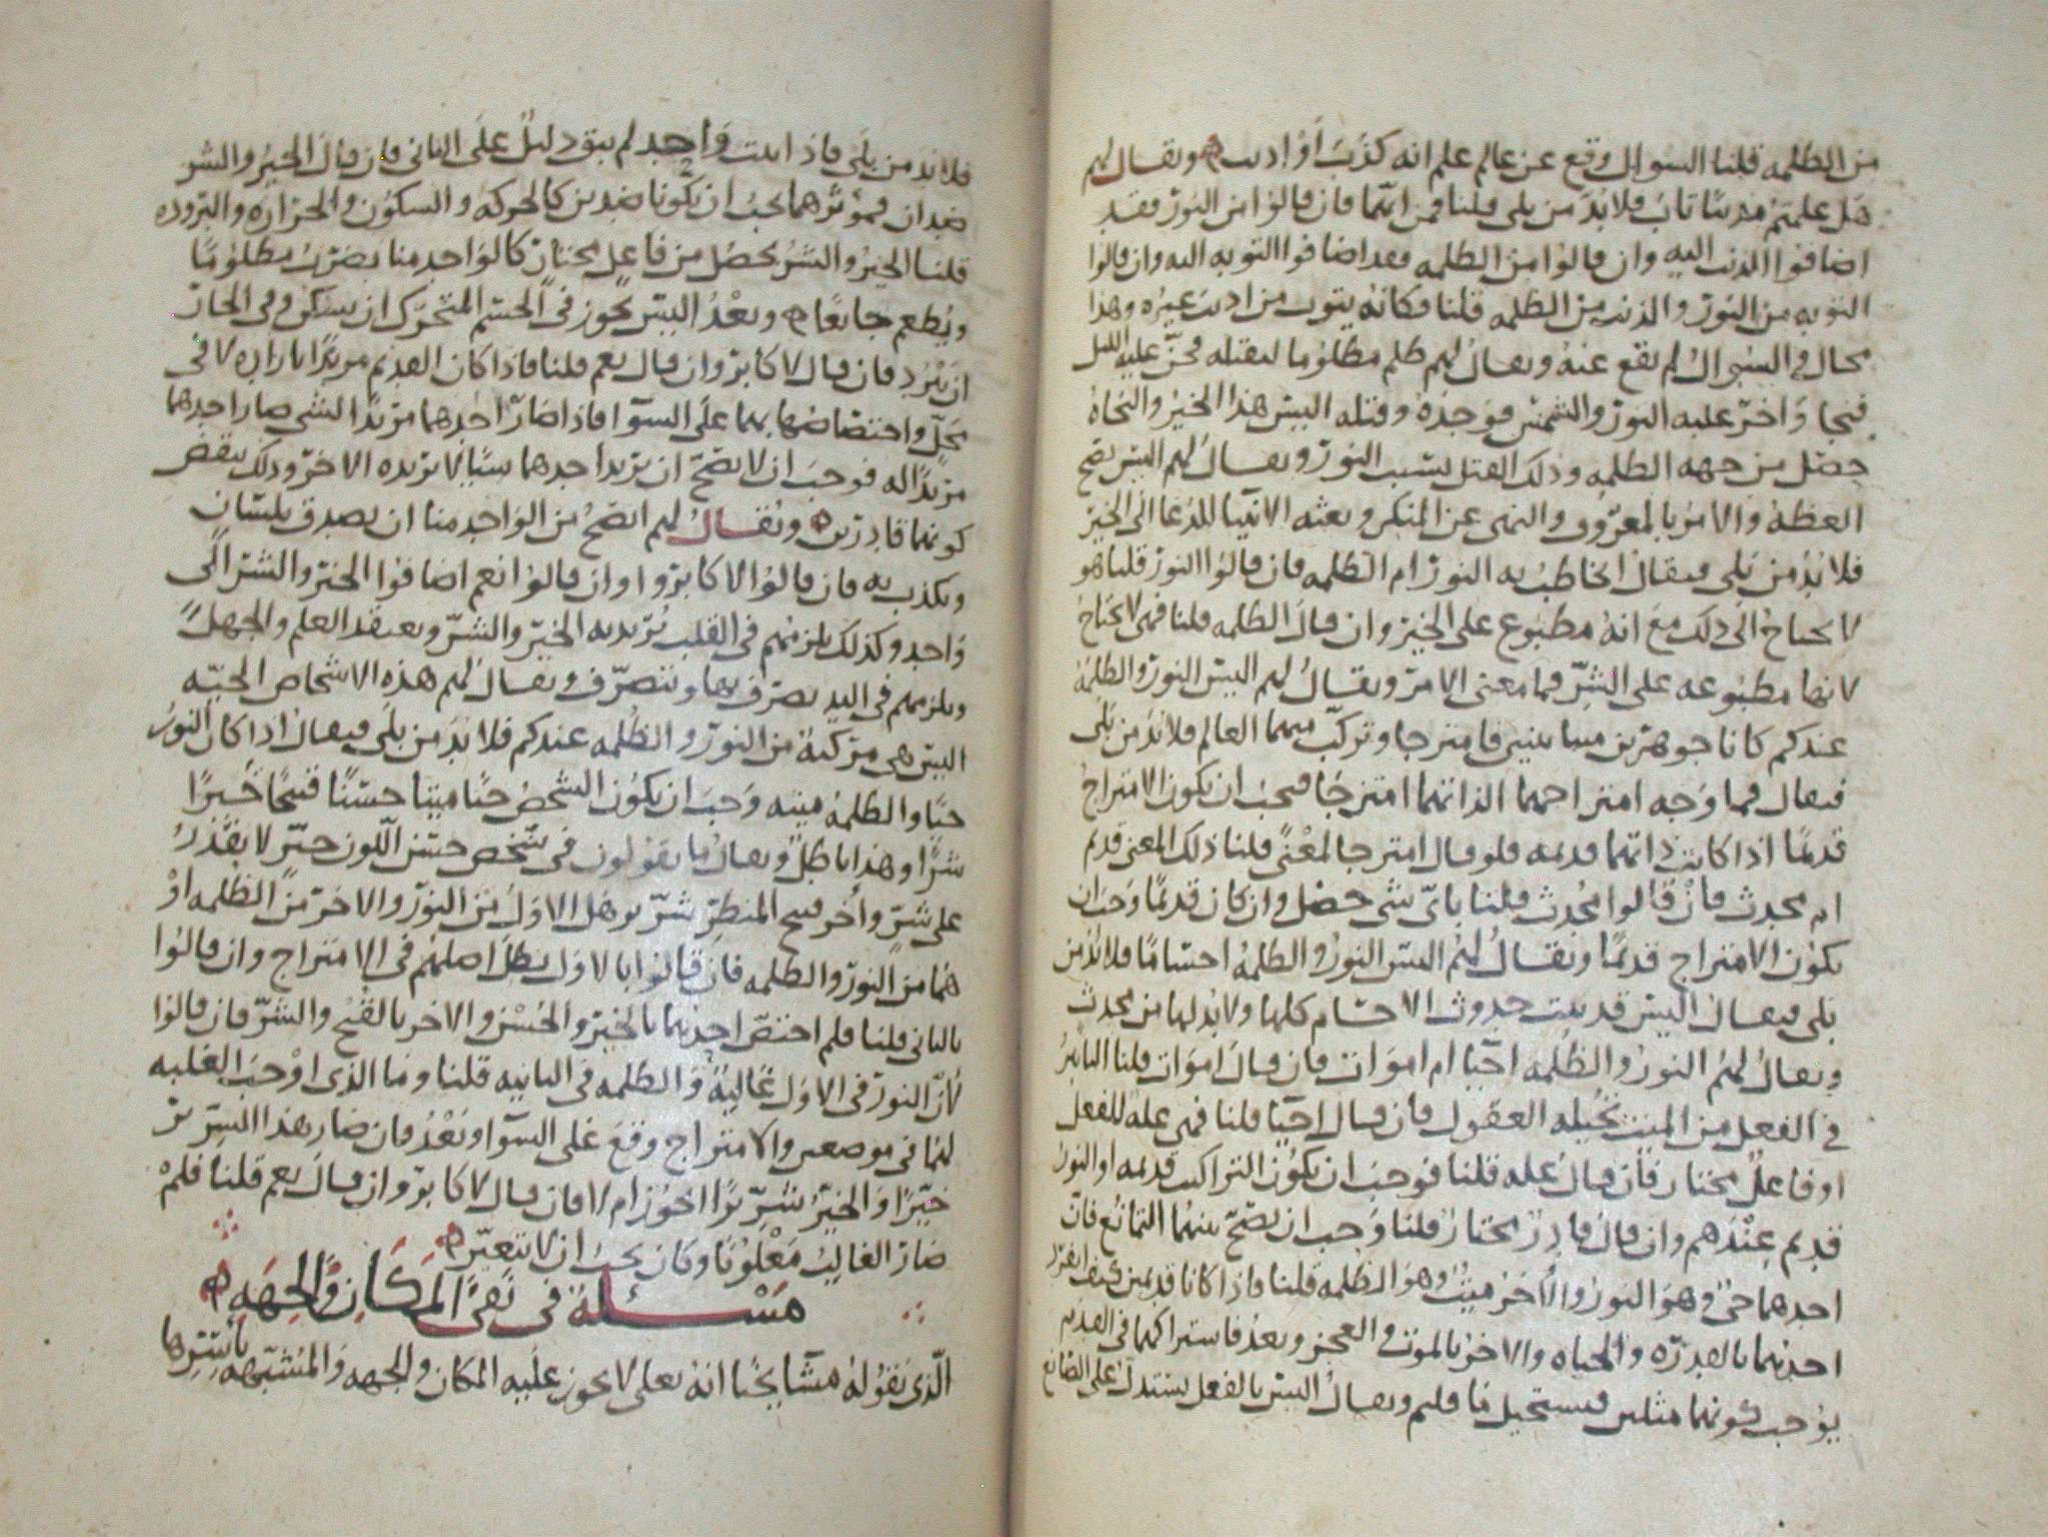 من الظلمه قلنا السوال وقع عن عالم علم انه كذب او اذنب ويقال لهم
هل علمتم مذنبا تاب فلا بد من بلى قلنا فمن ايهما فان قالوا من النور فقد
اضافوا الذنب اليه وان قالوا من الظلمه فقد اضافوا التوبه اليه وان قالوا
التوبه من النور والذنب من الظلمه قلنا فكانه يتوب من اذنب غيره وهذا
محال وفي السوال لم يقع عنه ويقال لهم ظلم مظلوما ليقتله فجن عليه الليل
فنجا واخر عليه النور والشمس فوجده وقتله اليس هذا الخير والنجاة
حصل من جهه الظلمه وذلك القتل بسبب النور ويقال لهم اليس يصح
العظة والامر بالمعروف والنهي عن المنكر وبعثه الانبيا للدعا الى الخير
فلا بد من بلى فيقال الخاطب به النور ام الظلمه فان قالوا النور قلنا هو
لا يحتاج الى ذلك مع انه مطبوع على الخير وان قال الظلمه قلنا فهي لا تحتاج
لانها مطبوعه على الشر فما معنى الامر ويقال لهم اليس النور والظلمة
عندكم كانا جوهرين متباينين فامتزجا وتركب منهما العالم فلا بد من بلى
فيقال فما وجه امتزاجهما الذاتهما امتزجا فيجب ان يكون الامتزاج
قديما اذا كانت ذاتهما قديمه فلو قال امتزجا لمعنى قلنا ذلك المعنى قديم
ام محدث فان قالوا محدث قلنا باي شي حصل وان كان قديما وجب ان
يكون الامتزاج قديما ويقال لهم اليس النور والظلمة اجساما فلا بد من
بلى فيقال اليس قد ثبت حدوث الاجسام كلها ولا بد لها من محدث
ويقال لهم النور والظلمه احيا ام اموات فان قال اموات قلنا التاثير
في الفعل من الميت تحيله العقول فان قال احيا قلنا فهي عله للفعل
او فاعل مختار فان قال عله قلنا فوجب ان يكون التراكيب قديمه او النور
قديم عندهم وان قال قادر مختار قلنا وجب ان يصح بينهما التمانع فان
احدهما حي وهو النور والاخر ميت وهو الظلمه قلنا واذا كانا قديمين كيف انفرد
احدهما بالقدره والحياه والاخر بالموت والعجز وبعد فاشتراكهما في القديم
يوجب كونهما مثلين فيستحيل ما قلتم ويقال اليس بالفعل يستدل على الصانع
فلا بد من بلى فاذا اثبت واحد لم يبق دليل على الثاني فان قال الخير والشر
ضدان فموثرهما يجب ان يكونا ضدين كالحركه والسكون والحراره والبروده
قلنا الخير والشر يحصل من فاعل مختار كالواحد منا يضرب مظلوما
ويطعم جائعا وبعد اليس يجوز في الجسم المتحرك ان يسكن وفي الحار
ان يبرد فان قال لا كابر وان قال نعم قلنا فاذا كان القديم مريدا بارادة لا في
محل واختصاصها بهما على السوا فاذا صار احدهما مريدا لشي صار احدهما
مريدا له فوجب ان لا يصح ان يريد احدهما شيا لا يريده الاخر وذلك ينقض
كونهما قادرين ويقال لهم ايصح من الواحد منا ان يصدق بلسان
ويكذب به فان قالوا لا كابروا وان قالوا نعم اضافوا الخير والشر الى
واحد وكذلك يلزمهم في القلب يريد به الخير والشر ويعتقد العلم والجهل
ويلزمهم في اليد يصرف بها ويتصرف ويقال لهم هذه الاشخاص الحيه
اليس هي مركبة من النور والظلمه عندكم فلا بد من بلى فيقال اذا كان النور
حيا والظلمة ميته وجب ان يكون الشخص حيا ميتا حسنا قبيحا خيرا
شرا وهذا باطل ويقال ما يقولون في شخص حسن اللون خير لا يقدر
على شر واخر قبيح المنظر شرير هل الاول من النور والاخر من الظلمه او
هما من النور والظلمه فان قالوا بالاول بطل اصلهم في الامتزاج وان قالوا
بالثاني قلنا فلم اختص احدهما بالخير والحسن والاخر بالقبح والشر فان قالوا
لان النور في الاول غالبة والظلمه في الثانيه قلنا وما الذي اوجب الغلبه
لهما في موضعين والامتزاج وقع على السوا وبعد فان صار هذا الشرير
خيرا والخير شريرا ايجوز ام لا فان قال لا كابر وان قال نعم قلنا فلم
صار الغالب مغلوبا وكان يجب ان لا يتغير
مسئلة في نفي المكان والجهه
الذي يقوله مشايخنا انه تعلى لا يجوز عليه المكان والجهه والمشبهه باسرها